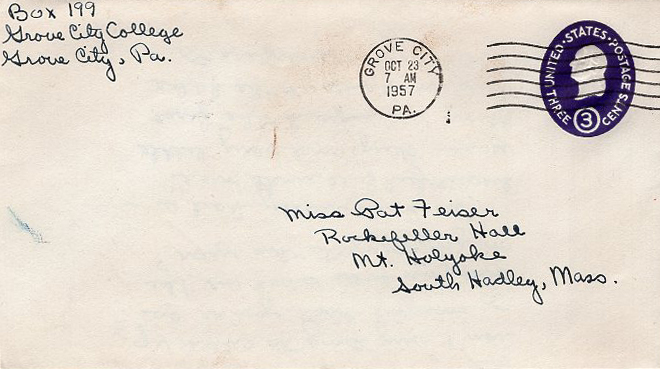 Box 199
Grove City College
Grove City, Pa.
GROVE CITY
OCT 23
7 AM
1957
PA.
UNITED·STATES·POSTAGE
THREE 3 CENTS
Miss Pat Feiser
Rockefeller Hall
Mt. Holyoke
South Hadley, Mass.